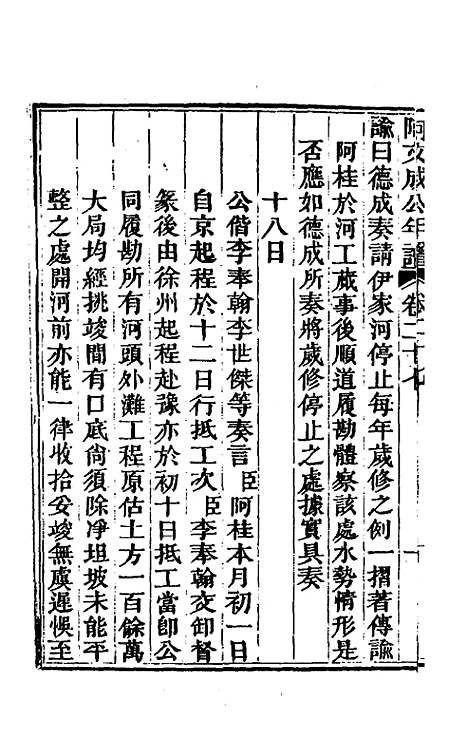 阿文成公年譜 卷二十七
諭曰德成奏請伊家河停止每年歲修之例一摺著傳諭
阿桂於河工蕆事後順道履勘體察該處水勢情形是
否應如德成所奏將歲修停止之處據實具奏
十八日
公偕李奉翰李世傑等奏言臣阿桂本月初一日
自京起程於十二日行抵工次臣李奉翰交卸督
篆後由徐州起程赴豫亦於初十日抵工當卽公
同履勘所有河頭外灘工程原估土方一百餘萬
大局均經挑竣間有口底尙須除淨坦坡未能平
整之處開河前亦能一律收拾妥竣無虞遲悞至